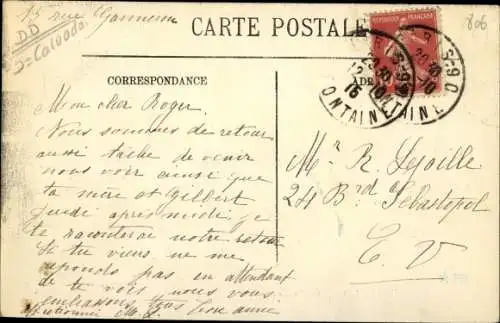 15 rue
DD
D=Calvados
CARTE POSTALE
806
REPUBLIQUE FRANÇAISE
CORRESPONDANCE
ADR
ONTAINE
Mon cher Roger.
Nous sommes de retour
aussi tache de venir
nous voir ainsi que
ta mère et Gilbert
Jeudi après midi je
te raconterai notre retour
Si tu viens ne me
reponds pas en attendant
de te voir nous vous
embrassons tous
affectionnée
Mr R. Lejoille
24 Brd Sebastopol
E. V